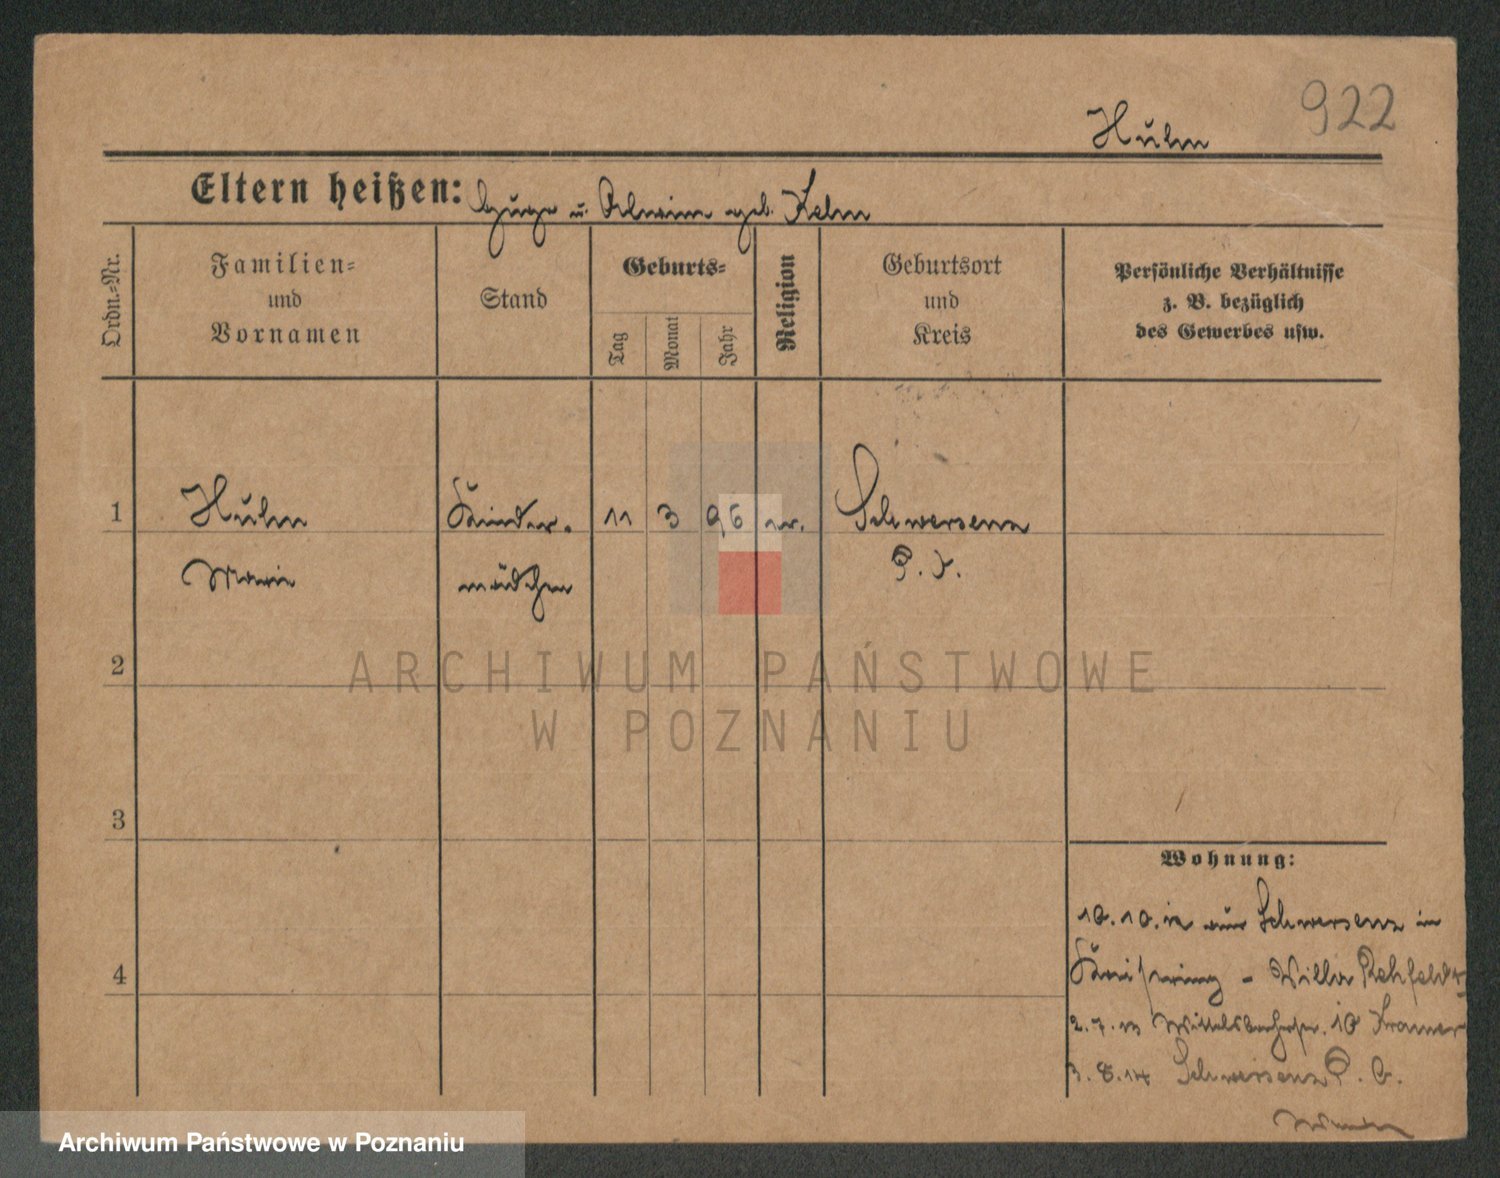 922
Hulm
Eltern heißen: Hugo u. Alwine geb. Kelm
Ordn.-Nr.
Familien=
und
Vornamen
Stand
Geburts=
Tag
Monat
Jahr
Religion
Geburtsort
und
Kreis
Persönliche Verhältnisse
z. B. bezüglich
des Gewerbes usw.
1 Hulm Kinder- 11 3 96 ev. Schwersenz
Marie mädchen P. O.
2
3
4
Wohnung:
10.10.12 aus Schwersenz in
Kaiserring - Villa Rehfeld
2.7.13 Wittelsbacherstr. 10 Kramer
3.8.14 Schwersenz P. O.
ARCHIWUM PAŃSTWOWE
W POZNANIU
Archiwum Państwowe w Poznaniu